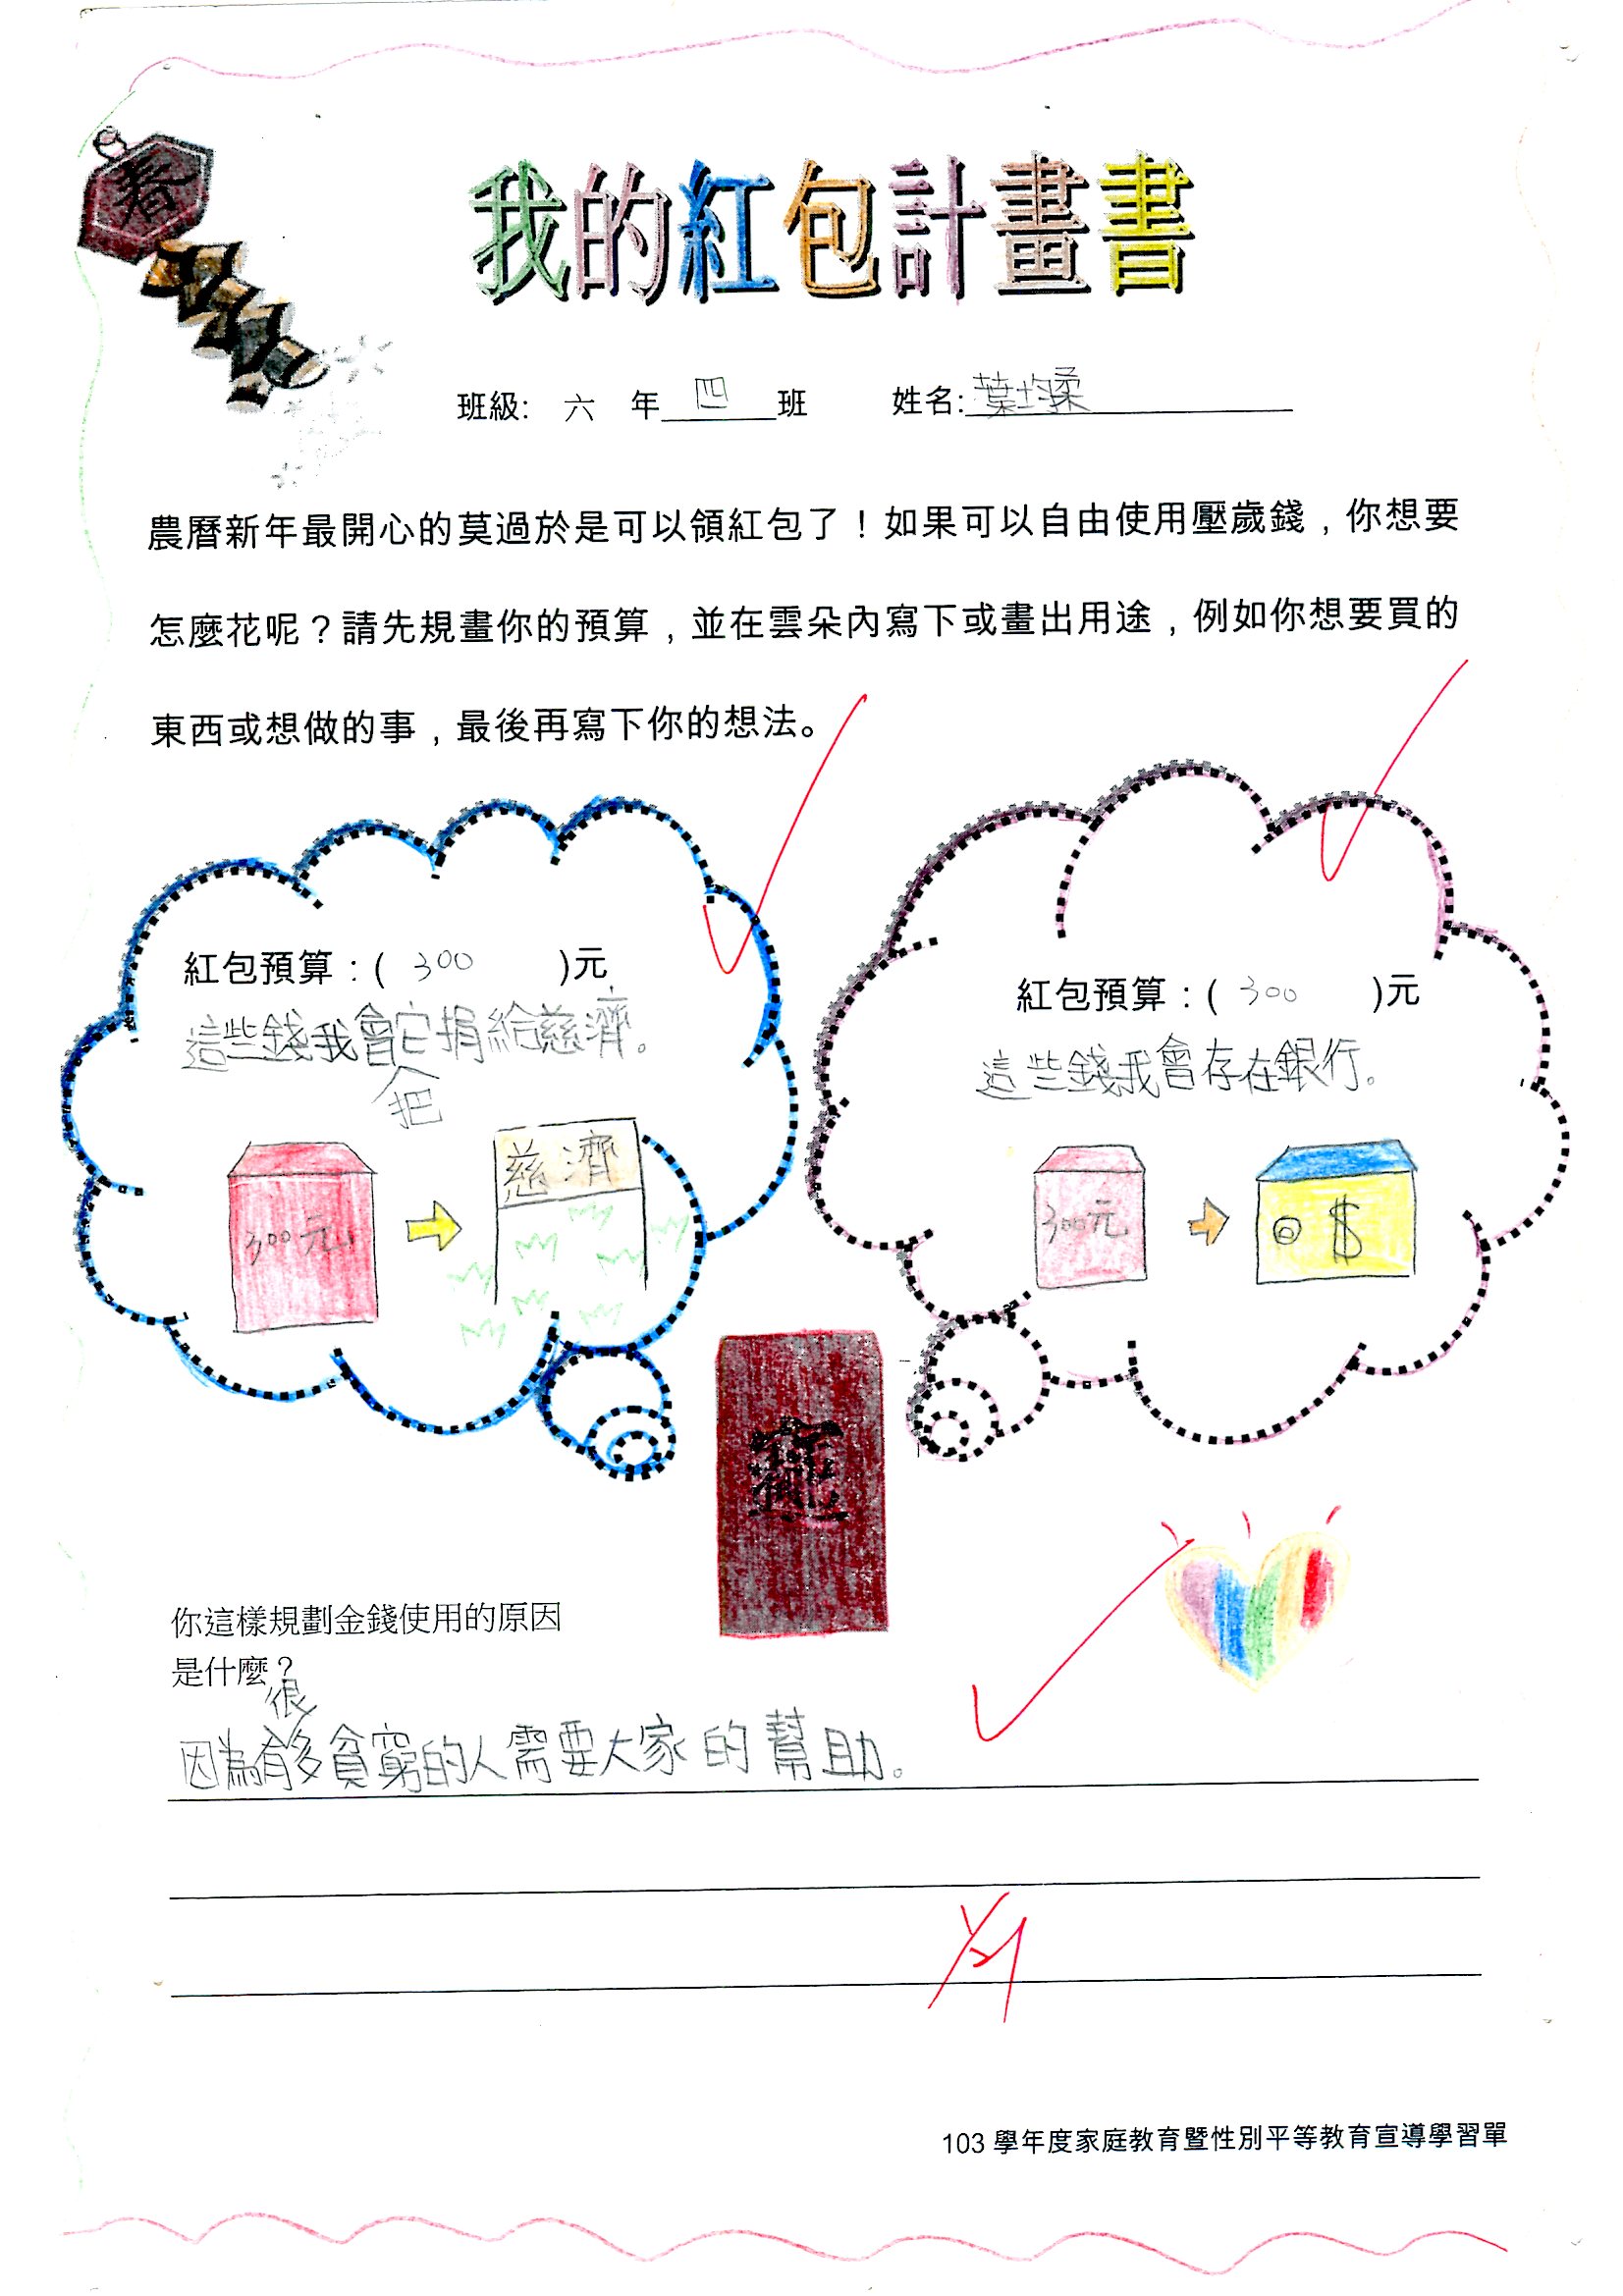 春
我的紅包計畫書
班級: 六 年 四 班 姓名:葉均柔
農曆新年最開心的莫過於是可以領紅包了！如果可以自由使用壓歲錢，你想要
怎麼花呢？請先規畫你的預算，並在雲朵內寫下或畫出用途，例如你想要買的
東西或想做的事，最後再寫下你的想法。
紅包預算：( 300 )元
這些錢我會把它捐給慈濟。
300元
慈濟
紅包預算：( 300 )元
這些錢我會存在銀行。
300元
$
你這樣規劃金錢使用的原因
是什麼？
因為有很多貧窮的人需要大家的幫助。
103 學年度家庭教育暨性別平等教育宣導學習單